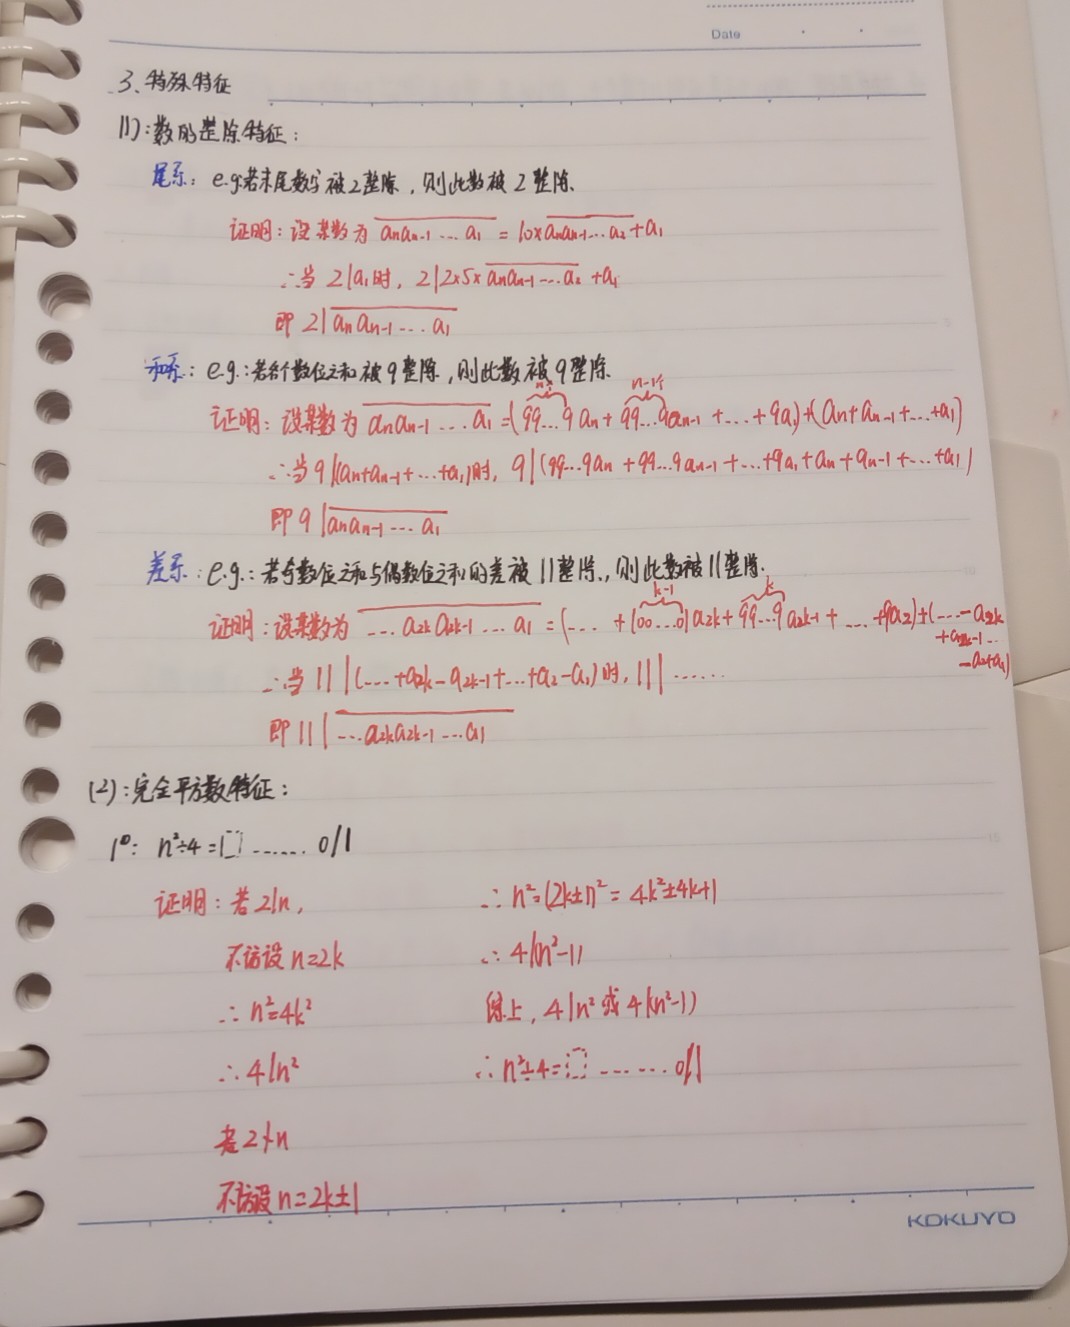 Date
3、特殊特征
(1):数的整除特征:
尾系: e.g:若末尾数字被2整除,则此数被2整除.
证明:设某数为 \overline{a_n a_{n-1} … a_1} = 10×\overline{a_n a_{n-1} … a_2}+a_1
∴当 2|a_1时, 2|2×5×\overline{a_n a_{n-1} … a_2} +a_1
即 2|\overline{a_n a_{n-1} … a_1}
和系: e.g.:若各个数位之和被9整除,则此数被9整除.
证明:设某数为 \overline{a_n a_{n-1} … a_1} =(99…9 a_n + 99…9a_{n-1} +…+9a_)+(a_n+a_{n-1}+…+a_1)
∴当9|(a_n+a_{n-1}+…+a_1)时, 9|(99…9a_n +99…9a_{n-1}+…+9a_1+a_n+a_{n-1}+…+a_1)
即9|\overline{a_n a_{n-1} … a_1}
差系: e.g.:若奇数位之和与偶数位之和的差被11整除.,则此数被11整除.
证明:设某数为 \overline{… a_{2k} a_{2k-1} … a_1} =(… +100…0| a_{2k}+99…9 a_{2k-1}+…+9a_2)+(…-a_{2k}
+a_{2k-1}…
-a_2+a_1)
∴当 11|(…+a_{2k}-a_{2k-1}+…+a_2-a_1)时, 11|……
即11|\overline{…a_{2k} a_{2k-1} …a_1}
(2):完全平方数特征:
1°: n²÷4=□ …… 0/1
证明:若2|n, ∴n²=(2k±1)²=4k²±4k+1
不妨设n=2k ∴4|(n²-1)
∴n²=4k² 综上,4|n²或4|(n²-1)
∴4|n² ∴n²÷4=□ …… 0/1
若2∤n
不妨设n=2k±1
KOKUYO